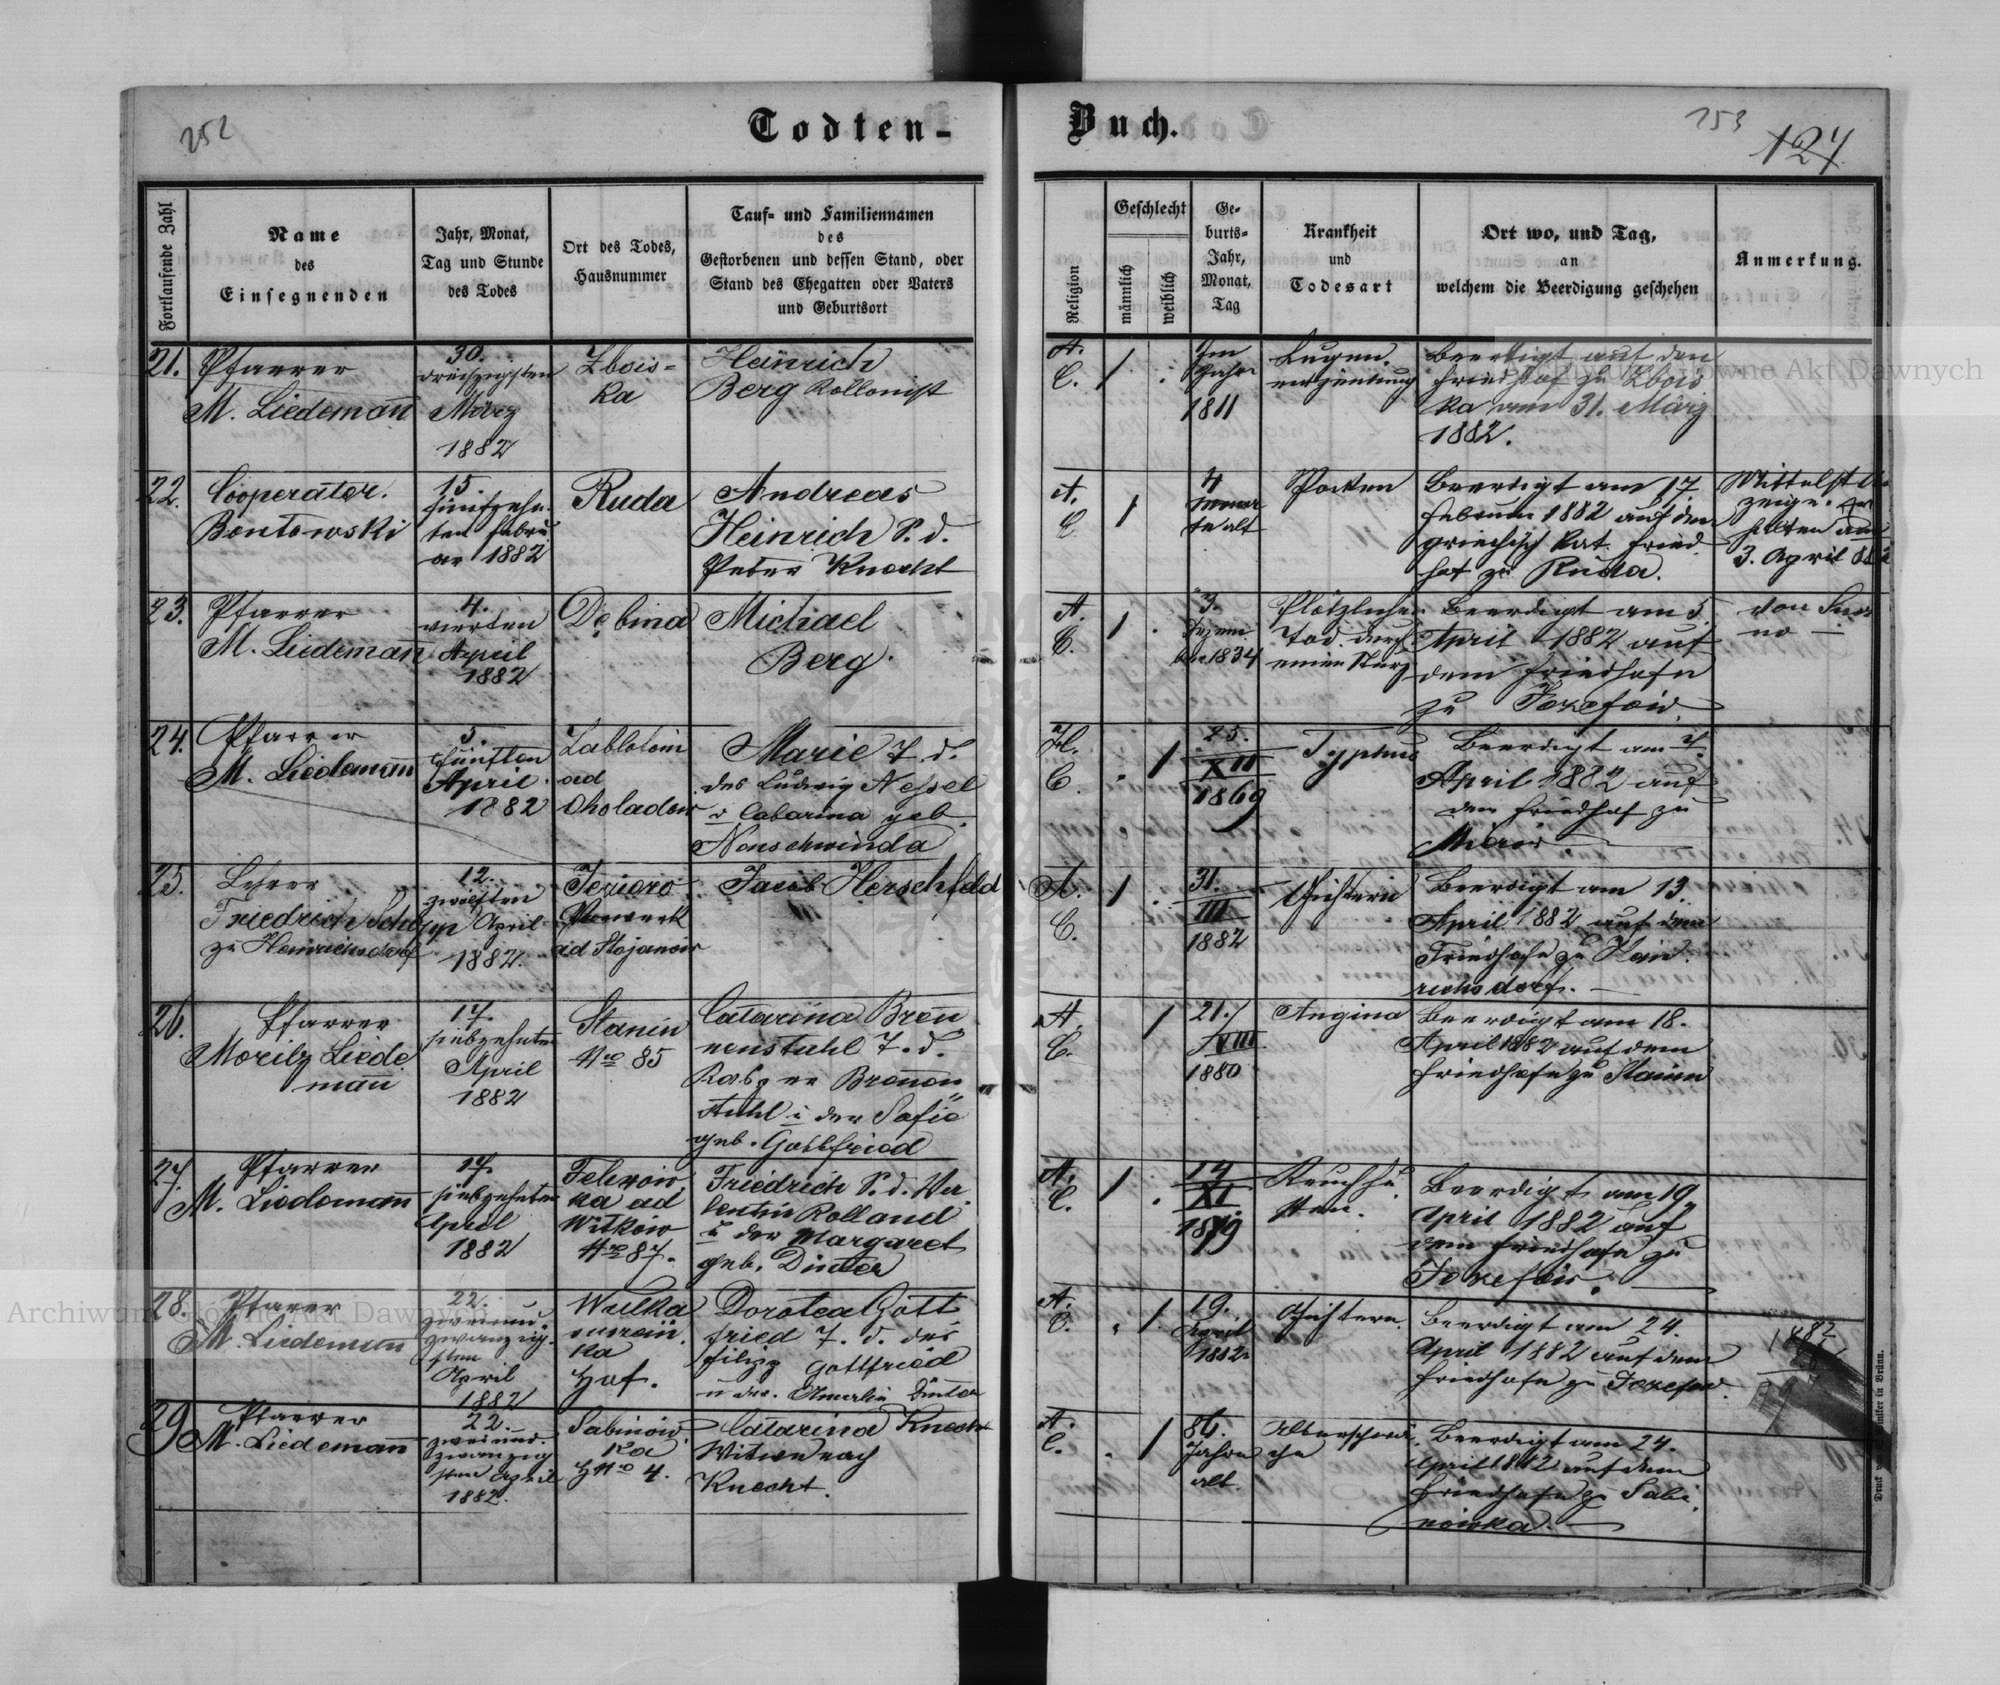 252
Todten-
Buch.
153
127
Fortlaufende Zahl
Name
des
Einsegnenden
Jahr, Monat,
Tag und Stunde
des Todes
Ort des Todes,
Hausnummer
Tauf- und Familiennamen
des
Gestorbenen und dessen Stand, oder
Stand des Ehegatten oder Vaters
und Geburtsort
Religion
Geschlecht
männlich
weiblich
Ge-
burts-
Jahr,
Monat,
Tag
Krankheit
und
Todesart
Ort wo, und Tag,
an
welchem die Beerdigung geschehen
Anmerkung.
21.
Pfarrer
M. Liedemañ
30.
dreißigsten
März
1882
Zbois-
ka
Heinrich
Berg Kollonist
A.
C.
1
Im
Jahr
1811
Lugen
entzündung
Beerdigt auf den
Friedhof zu Zbois
ka am 31. März
1882.
22.
Cooperator.
Bontowski
15.
fünfzehn
ten Febru
ar 1882
Ruda
Andreas
Heinrich S. d.
Peter Knecht
A.
C.
1
4
Mona
te alt
Pocken
Beerdigt am 17.
Februar 1882 auf dem
griechisch Kat. Fried
hof zu Ruda.
zeige.
3. April
23.
Pfarrer
M. Liedemañ
4.
vierten
April
1882
Dębina
Michael
Berg.
A.
C.
1
3.
Dezem
ber 1834
Plötzlicher
Tod durch
einen Sturz
Beerdigt am 5.
April 1882 auf
dem Friedhofe
zu Jozefow.
von
no —
24.
Pfarrer
M. Liedemañ
5.
fünften
April
1882
Zablotom
ad
Choladow
Marie T. d.
des Ludwig Nessel
u Catarina geb.
Nonschwinda
H.
C.
1
25.
XII
1869
Typhus
Beerdigt am 7.
April 1882 auf
dem Friedhof zu
25.
Lehrer
Friedrich Schepp
zu Heinrichsdorf
12.
zwölften
April
1882.
Jezioro
Vorwerk
ad Stojanow
Jacob Herschfeld
A.
C.
1
31.
III
1882
Beerdigt am 13.
April 1882 auf dem
Friedhofe zu Hein
richsdorf. —
26.
Pfarrer
Moritz Liede
mañ
17.
siebzehnten
April
1882
Stanin
Nro 85
Catarina Breñ
nenstuhl T. d.
Breñen
stuhl u der Sofie
geb. Gottfried
A.
C.
1
21.
VIII
1880
Angina
Beerdigt am 18.
April 1882 auf dem
Friedhofe zu Stanin
27.
Pfarrer
M. Liedemañ
17.
siebzehnten
April
1882
Felixow
ka ad
Witkow
Nro 87.
Friedrich S. d. Va
lentin Rolland
u der Margaret
geb. Dinter
A.
C.
1
14
XI
1879
Keuchhu
sten.
Beerdigt am 19
April 1882 auf
dem Friedhofe zu
Jozefow.
28.
Pfarer
M. Liedeman
22.
zweiund.
zwanzig.
sten
April
1882
Wulka
ka
Hof.
Dorotea Gott
fried T. d. des
Filipp Gottfried
u der. Amalia Dinter
A.
C.
1
19.
April
1882
Beerdigt am 24.
April 1882 auf dem
Friedhofe zu Jozefow.
1882
29
Pfarrer
M. Liedeman
22.
zweiund.
zwanzig
sten April
1882.
Sabinow
ka
HNro 4.
Catarina Knecht
Witwe nach
Knecht.
A.
C.
1
86.
Jahre
alt
Altersschwä
che
Beerdigt am 24.
April 1882 auf dem
Friedhofe zu Sabi
nowka. —
Archiwum Główne Akt Dawnych
Archiwum Główne Akt Dawnych